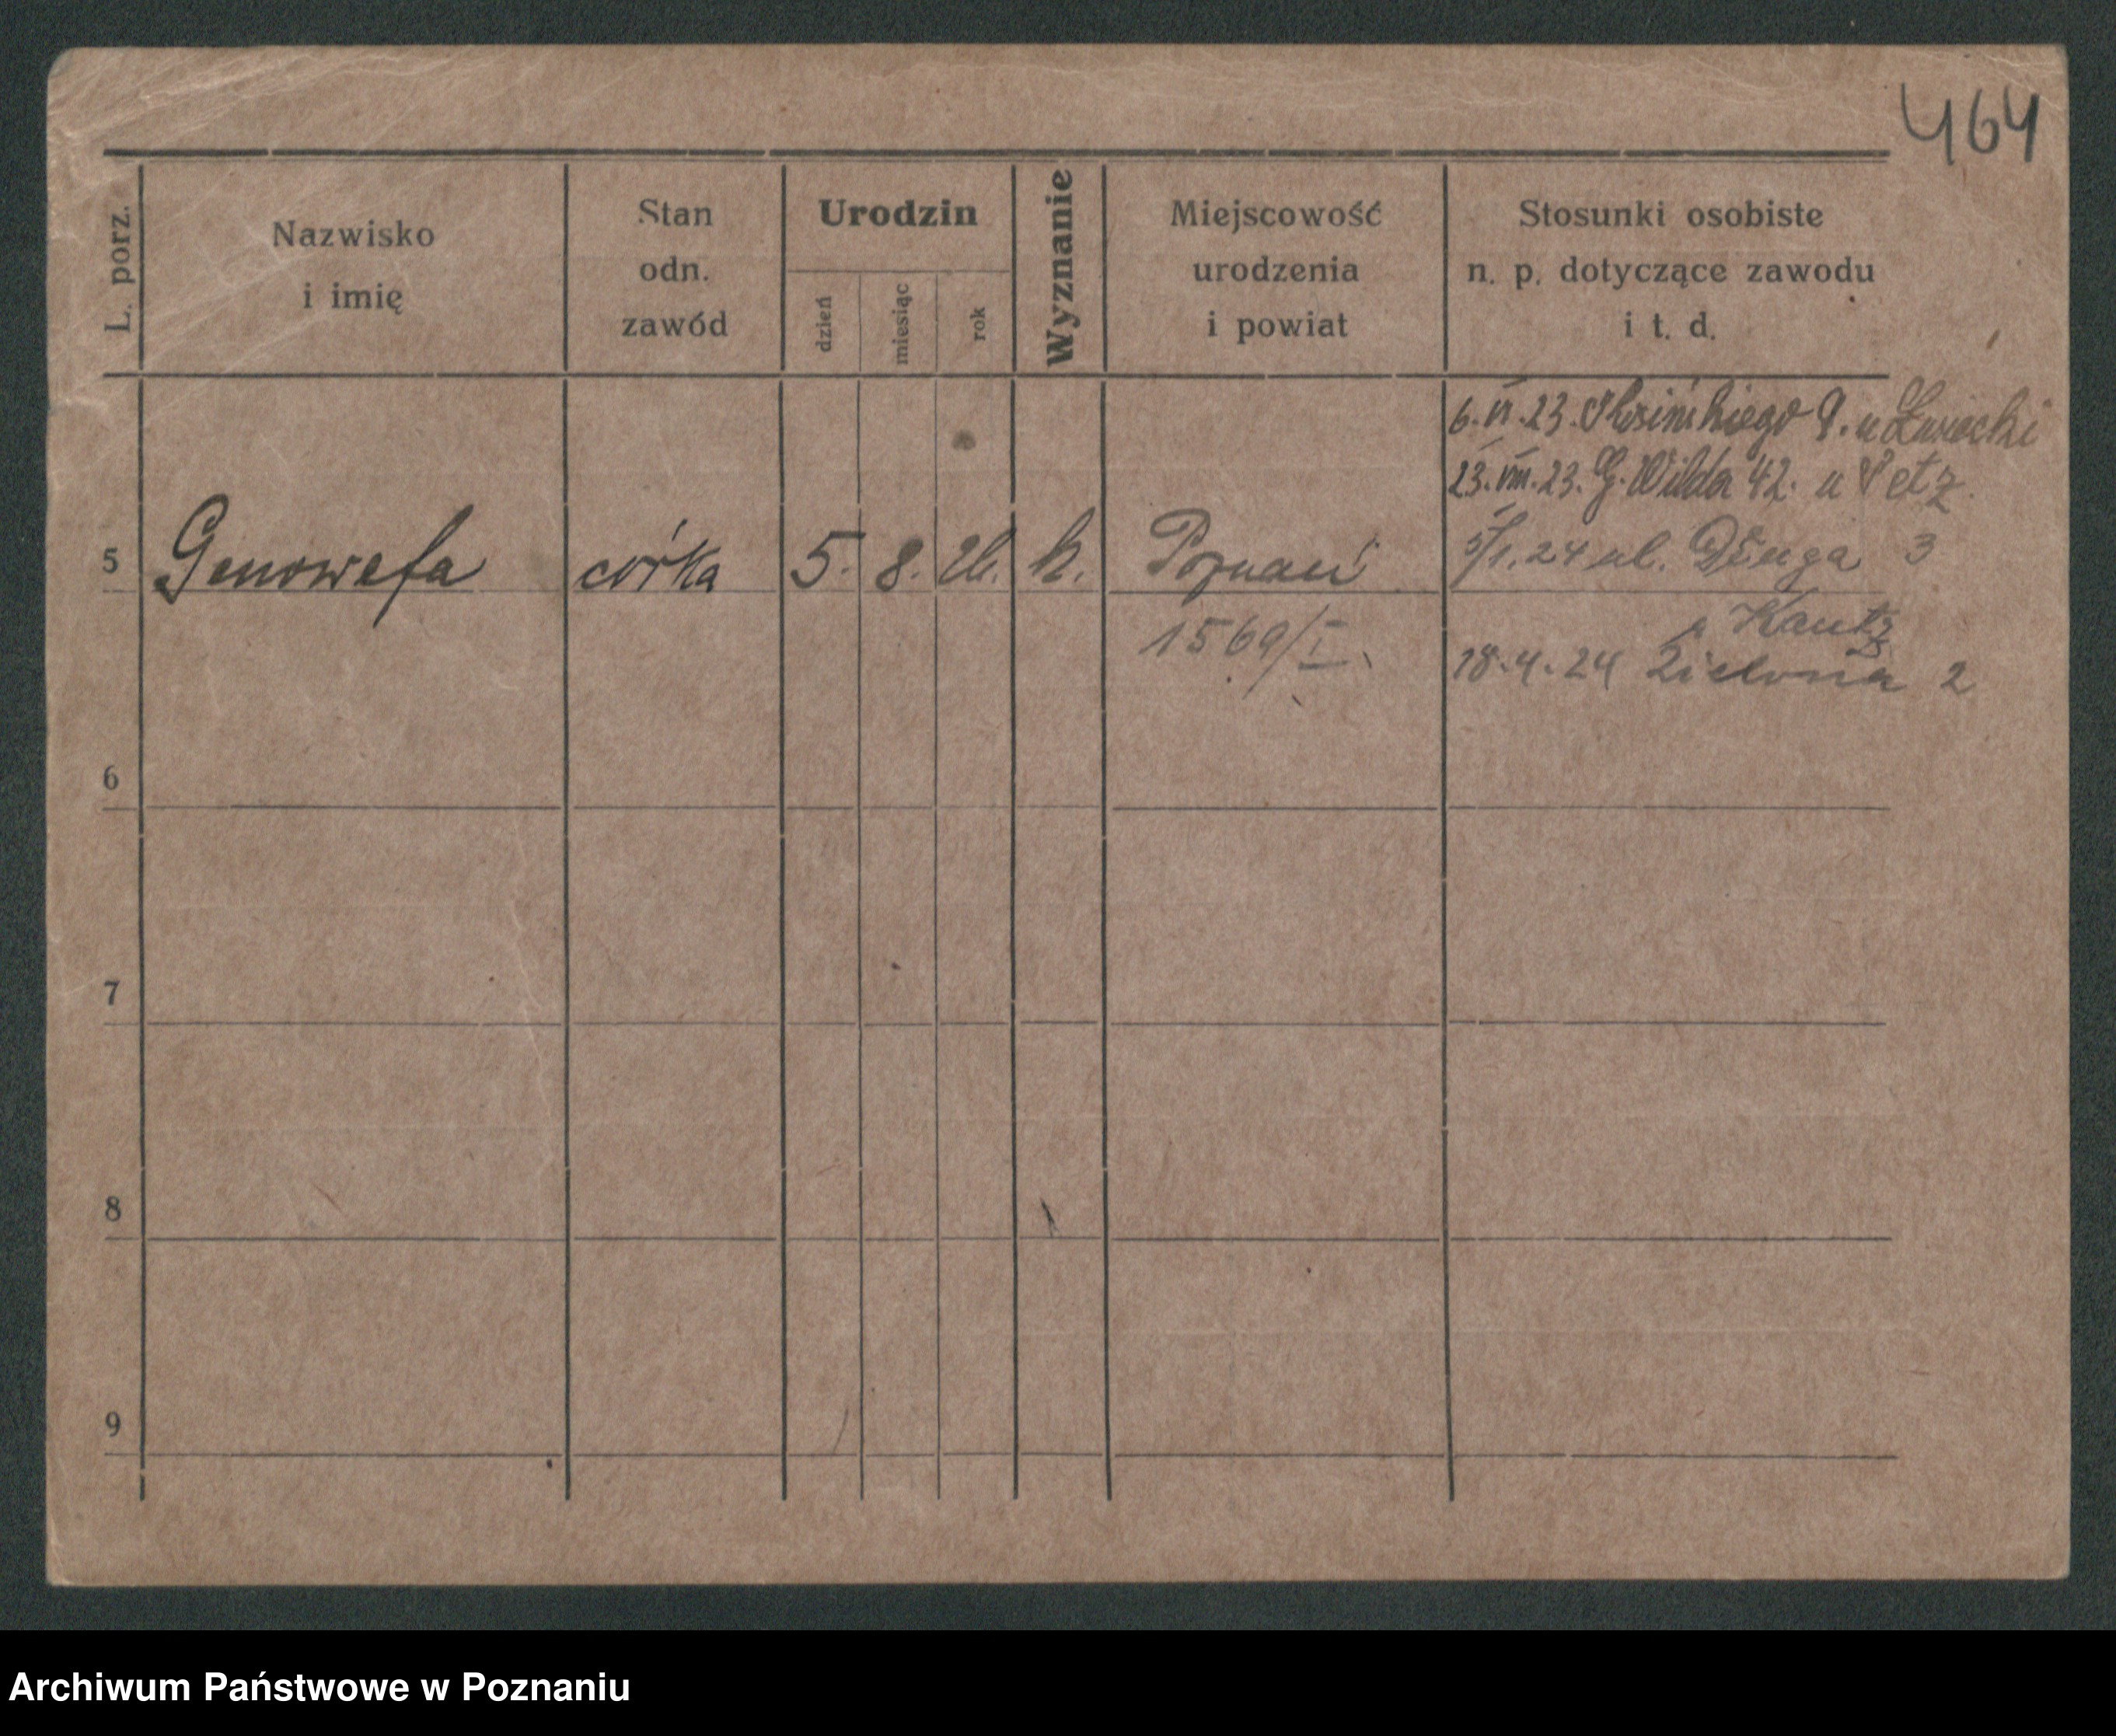 464
L. porz.
Nazwisko
i imię
Stan
odn.
zawód
Urodzin
dzień
miesiąc
rok
Wyznanie
Miejscowość
urodzenia
i powiat
Stosunki osobiste
n. p. dotyczące zawodu
i t. d.
6. VI. 23. u
23. VIII. 23. G. Wilda 42. u Petz
5 Genowefa córka 5. 8. k. Poznań 5/1. 24 ul. Długa 3
u Kautz
1569/I.
18.4.24 Zielona 2
6
7
8
9
Archiwum Państwowe w Poznaniu